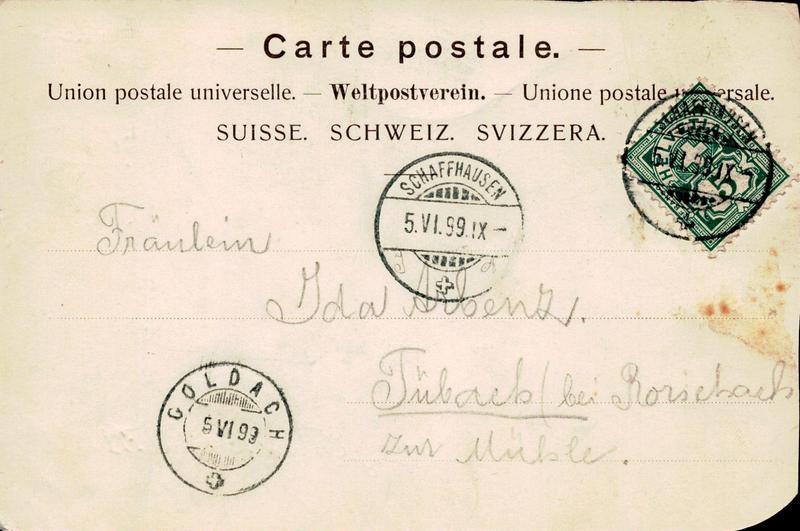 — Carte postale. —
Union postale universelle. — Weltpostverein. — Unione postale universale.
SUISSE. SCHWEIZ. SVIZZERA.
HELVETIA
5
5.VI.99.IX–
SCHAFFHAUSEN
5.VI.99.IX–
Fräulein
Ida Arbenz.
Tübach (bei Rorschach
zur Mühle.
GOLDACH
5 VI 99